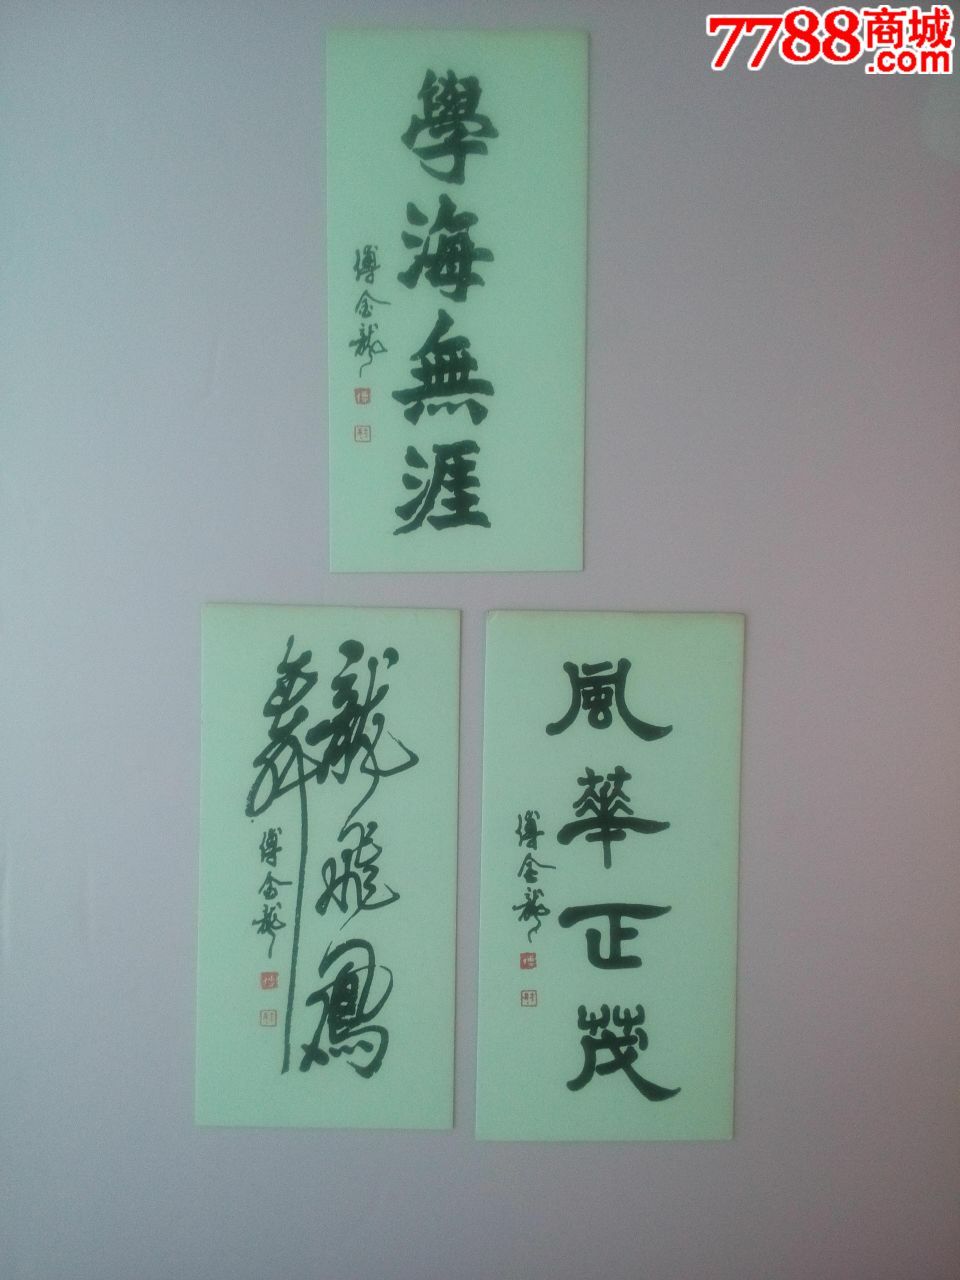 7788商城
.com
學海無涯
傅金龍
龍飛鳳
舞
傅金龍
風華正茂
傅金龍